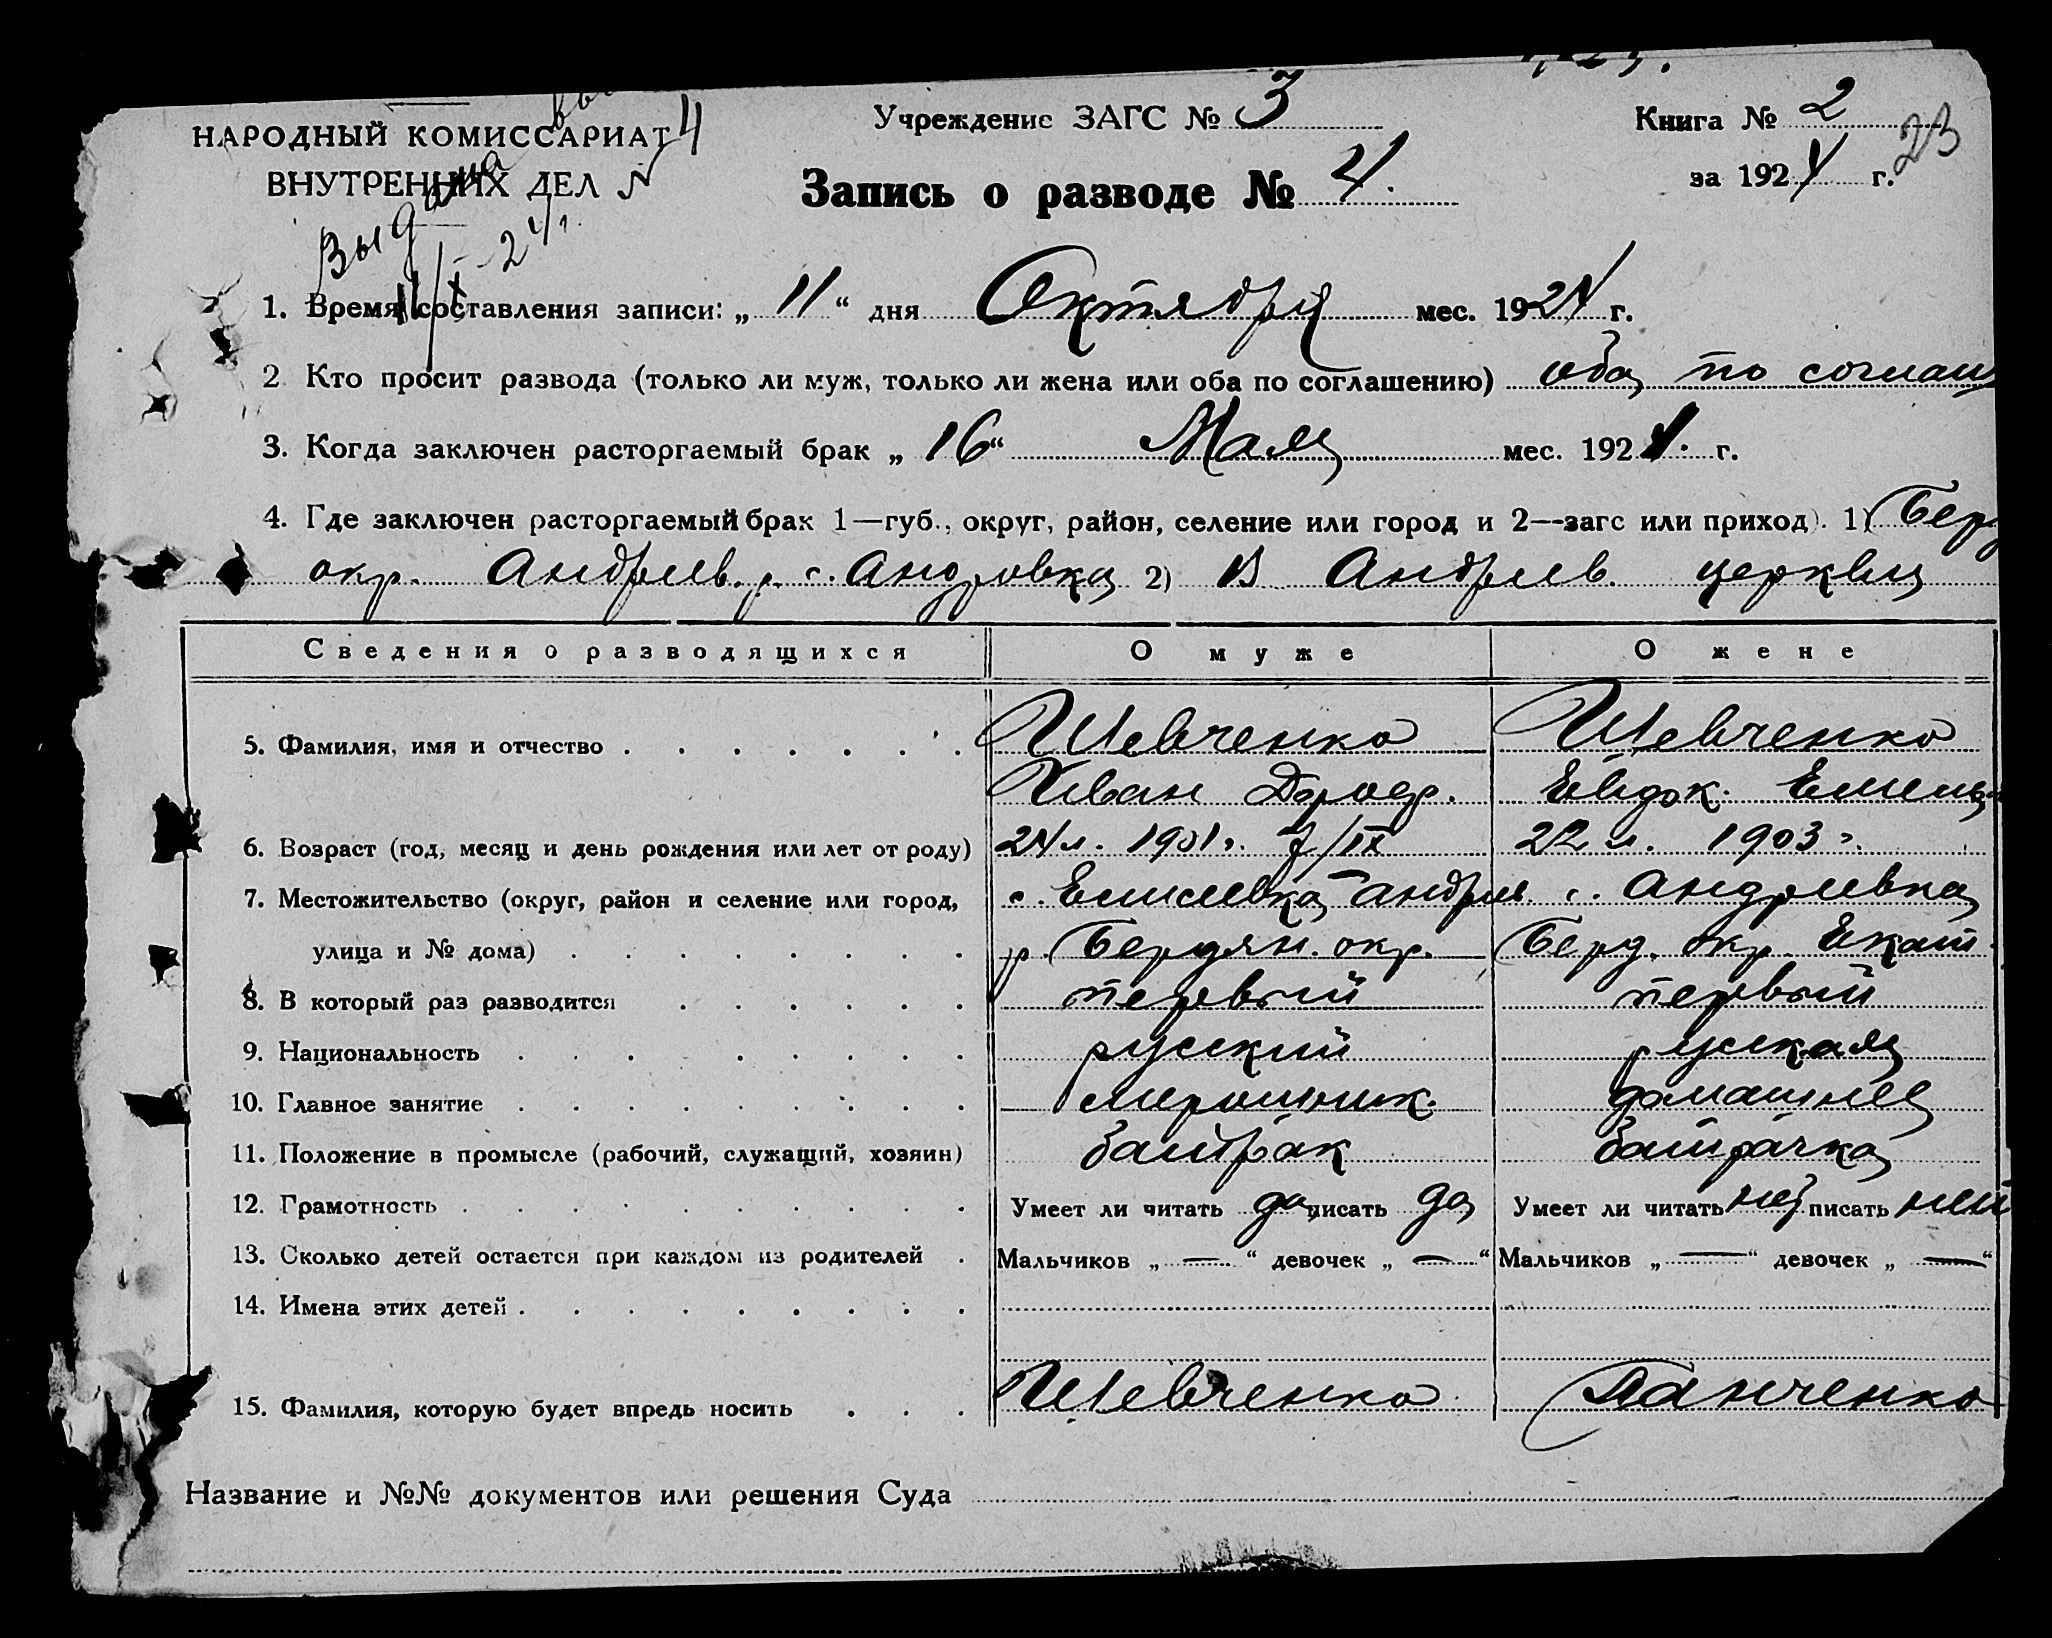 НАРОДНЫЙ КОМИССАРИАТ
ВНУТРЕННИХ ДЕЛ
N 4
Выдана
11/X-24 г.
Учреждение ЗАГС № 3
Книга № 2
за 1924 г.
23
Запись о разводе № 4.
1. Время составления записи: „ 11 “ дня Октября мес. 1924 г.
2 Кто просит развода (только ли муж, только ли жена или оба по соглашению) оба, по соглаш
3. Когда заключен расторгаемый брак „ 16 “ Мая мес. 1924. г.
4. Где заключен расторгаемый брак 1—губ., округ, район, селение или город и 2—загс или приход). 1) Берд
окр. Андреев. р. с. Андровка 2) В Андреев. церкви
Сведения о разводящихся О муже О жене
5. Фамилия, имя и отчество Шевченко Шевченко
Иван Дороф. Евдок. Емельян
6. Возраст (год, месяц и день рождения или лет от роду) 24 л. 1901 г. 7/IX 22 л. 1903 г.
7. Местожительство (округ, район и селение или город, с. Елисеевка, Андреев. с. Андреевка
улица и № дома) р. Бердян. окр. Берд. окр. Екат.
8. В который раз разводится первый первый
9. Национальность русский руская
10. Главное занятие мирошник. домашнее
11. Положение в промысле (рабочий, служащий, хозяин) батрак батрачка
12. Грамотность Умеет ли читать да писать да Умеет ли читать нет писать нет
13. Сколько детей остается при каждом из родителей Мальчиков „ — “ девочек „ — “ Мальчиков „ — “ девочек „ — “
14. Имена этих детей
15. Фамилия, которую будет впредь носить Шевченко Панченко
Название и №№ документов или решения Суда